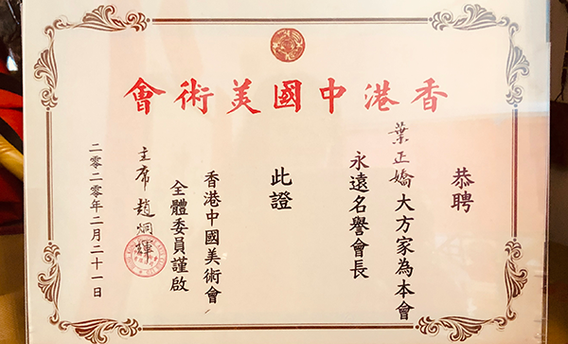 香港中國美術會
恭聘
葉正嬌大方家為本會
永遠名譽會長
此證
香港中國美術會
全體委員謹啟
主席 趙炯輝
二零二零年二月二十一日